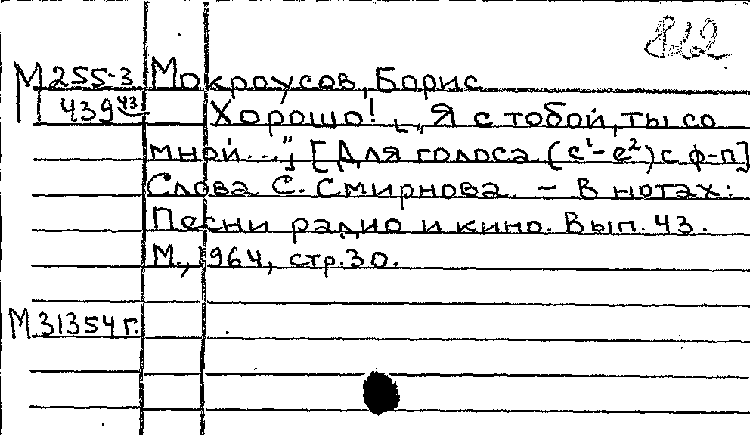 822
М 255-3 Мокроусов, Борис
439 43 Хорошо! [„Я с тобой, ты со
мной..."] [Для голоса (c¹-e²) с ф-п]
Слова С. Смирнова. – В нотах:
Песни радио и кино. Вып. 43.
М., 1964, стр. 30.
М 31354 г.